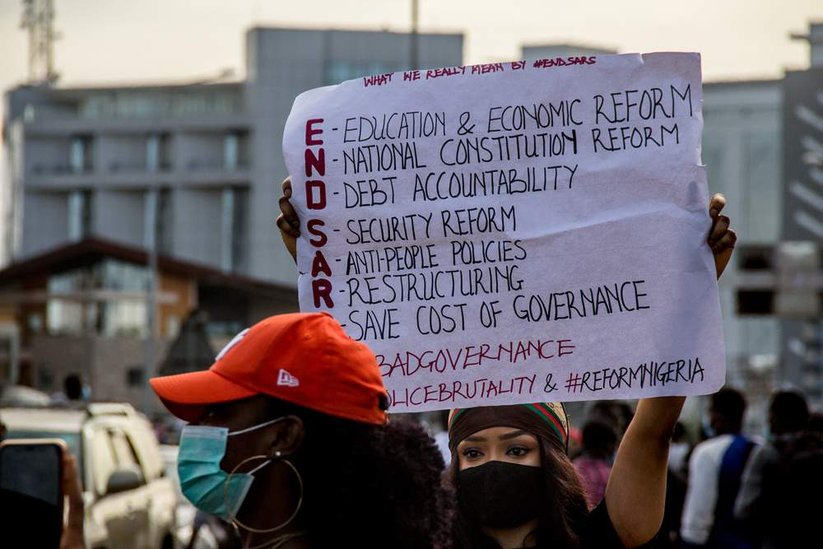 WHAT WE REALLY MEAN BY #ENDSARS
E - EDUCATION & ECONOMIC REFORM
N - NATIONAL CONSTITUTION REFORM
D - DEBT ACCOUNTABILITY
S - SECURITY REFORM
A - ANTI-PEOPLE POLICIES
R - RESTRUCTURING
- SAVE COST OF GOVERNANCE
BADGOVERNANCE
OLICEBRUTALITY & #REFORMNIGERIA
NEW ERA